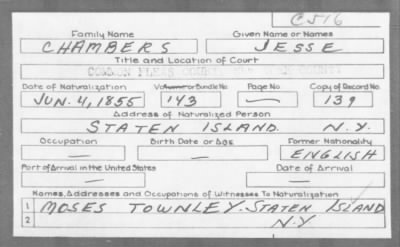 C516
Family Name Given Name or Names
CHAMBERS JESSE
Title and Location of Court
COMMON PLEAS COURT
Date of Naturalization Volume or Bundle No. Page No. Copy of Record No.
JUN. 4, 1855 143 — 139
Address of Naturalized Person
STATEN ISLAND N.Y.
Occupation Birth Date or Age Former Nationality
— — ENGLISH
Port of Arrival in the United States Date of Arrival
— —
Names, Addresses and Occupations of Witnesses To Naturalization
1 MOSES TOWNLEY - STATEN ISLAND
2 N.Y